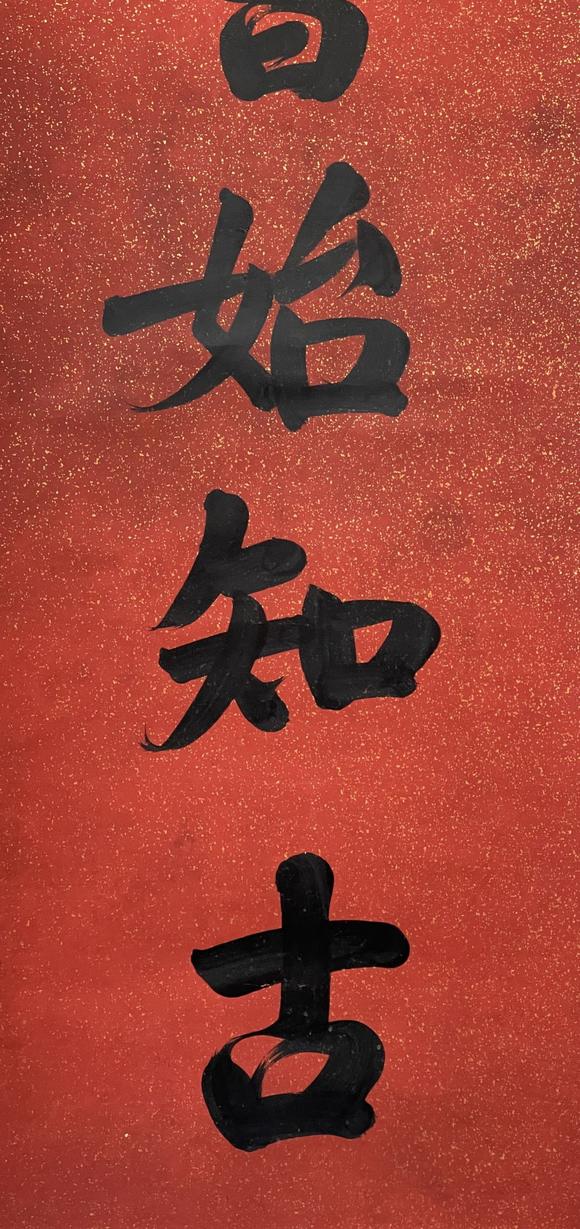 始
知
古